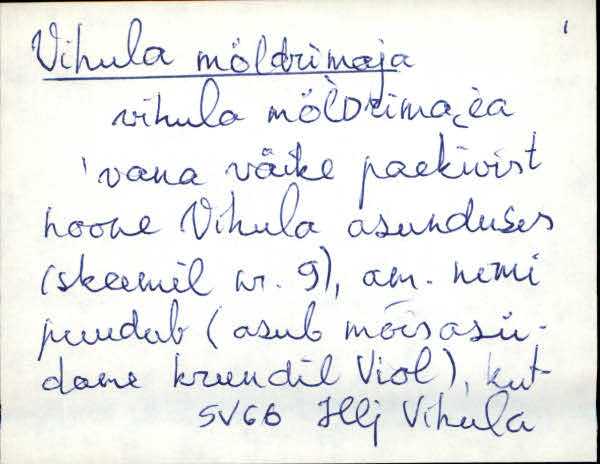 Vihula möldrimaja 1
vihula mölDrima,ea
'vana väike paekivist
hoone Vihula asunduses
(skeemil nr. 9), am. nimi
puudub (asub mõisasü-
dame krundil Viol), kut-
SVGG Hlj Vihula